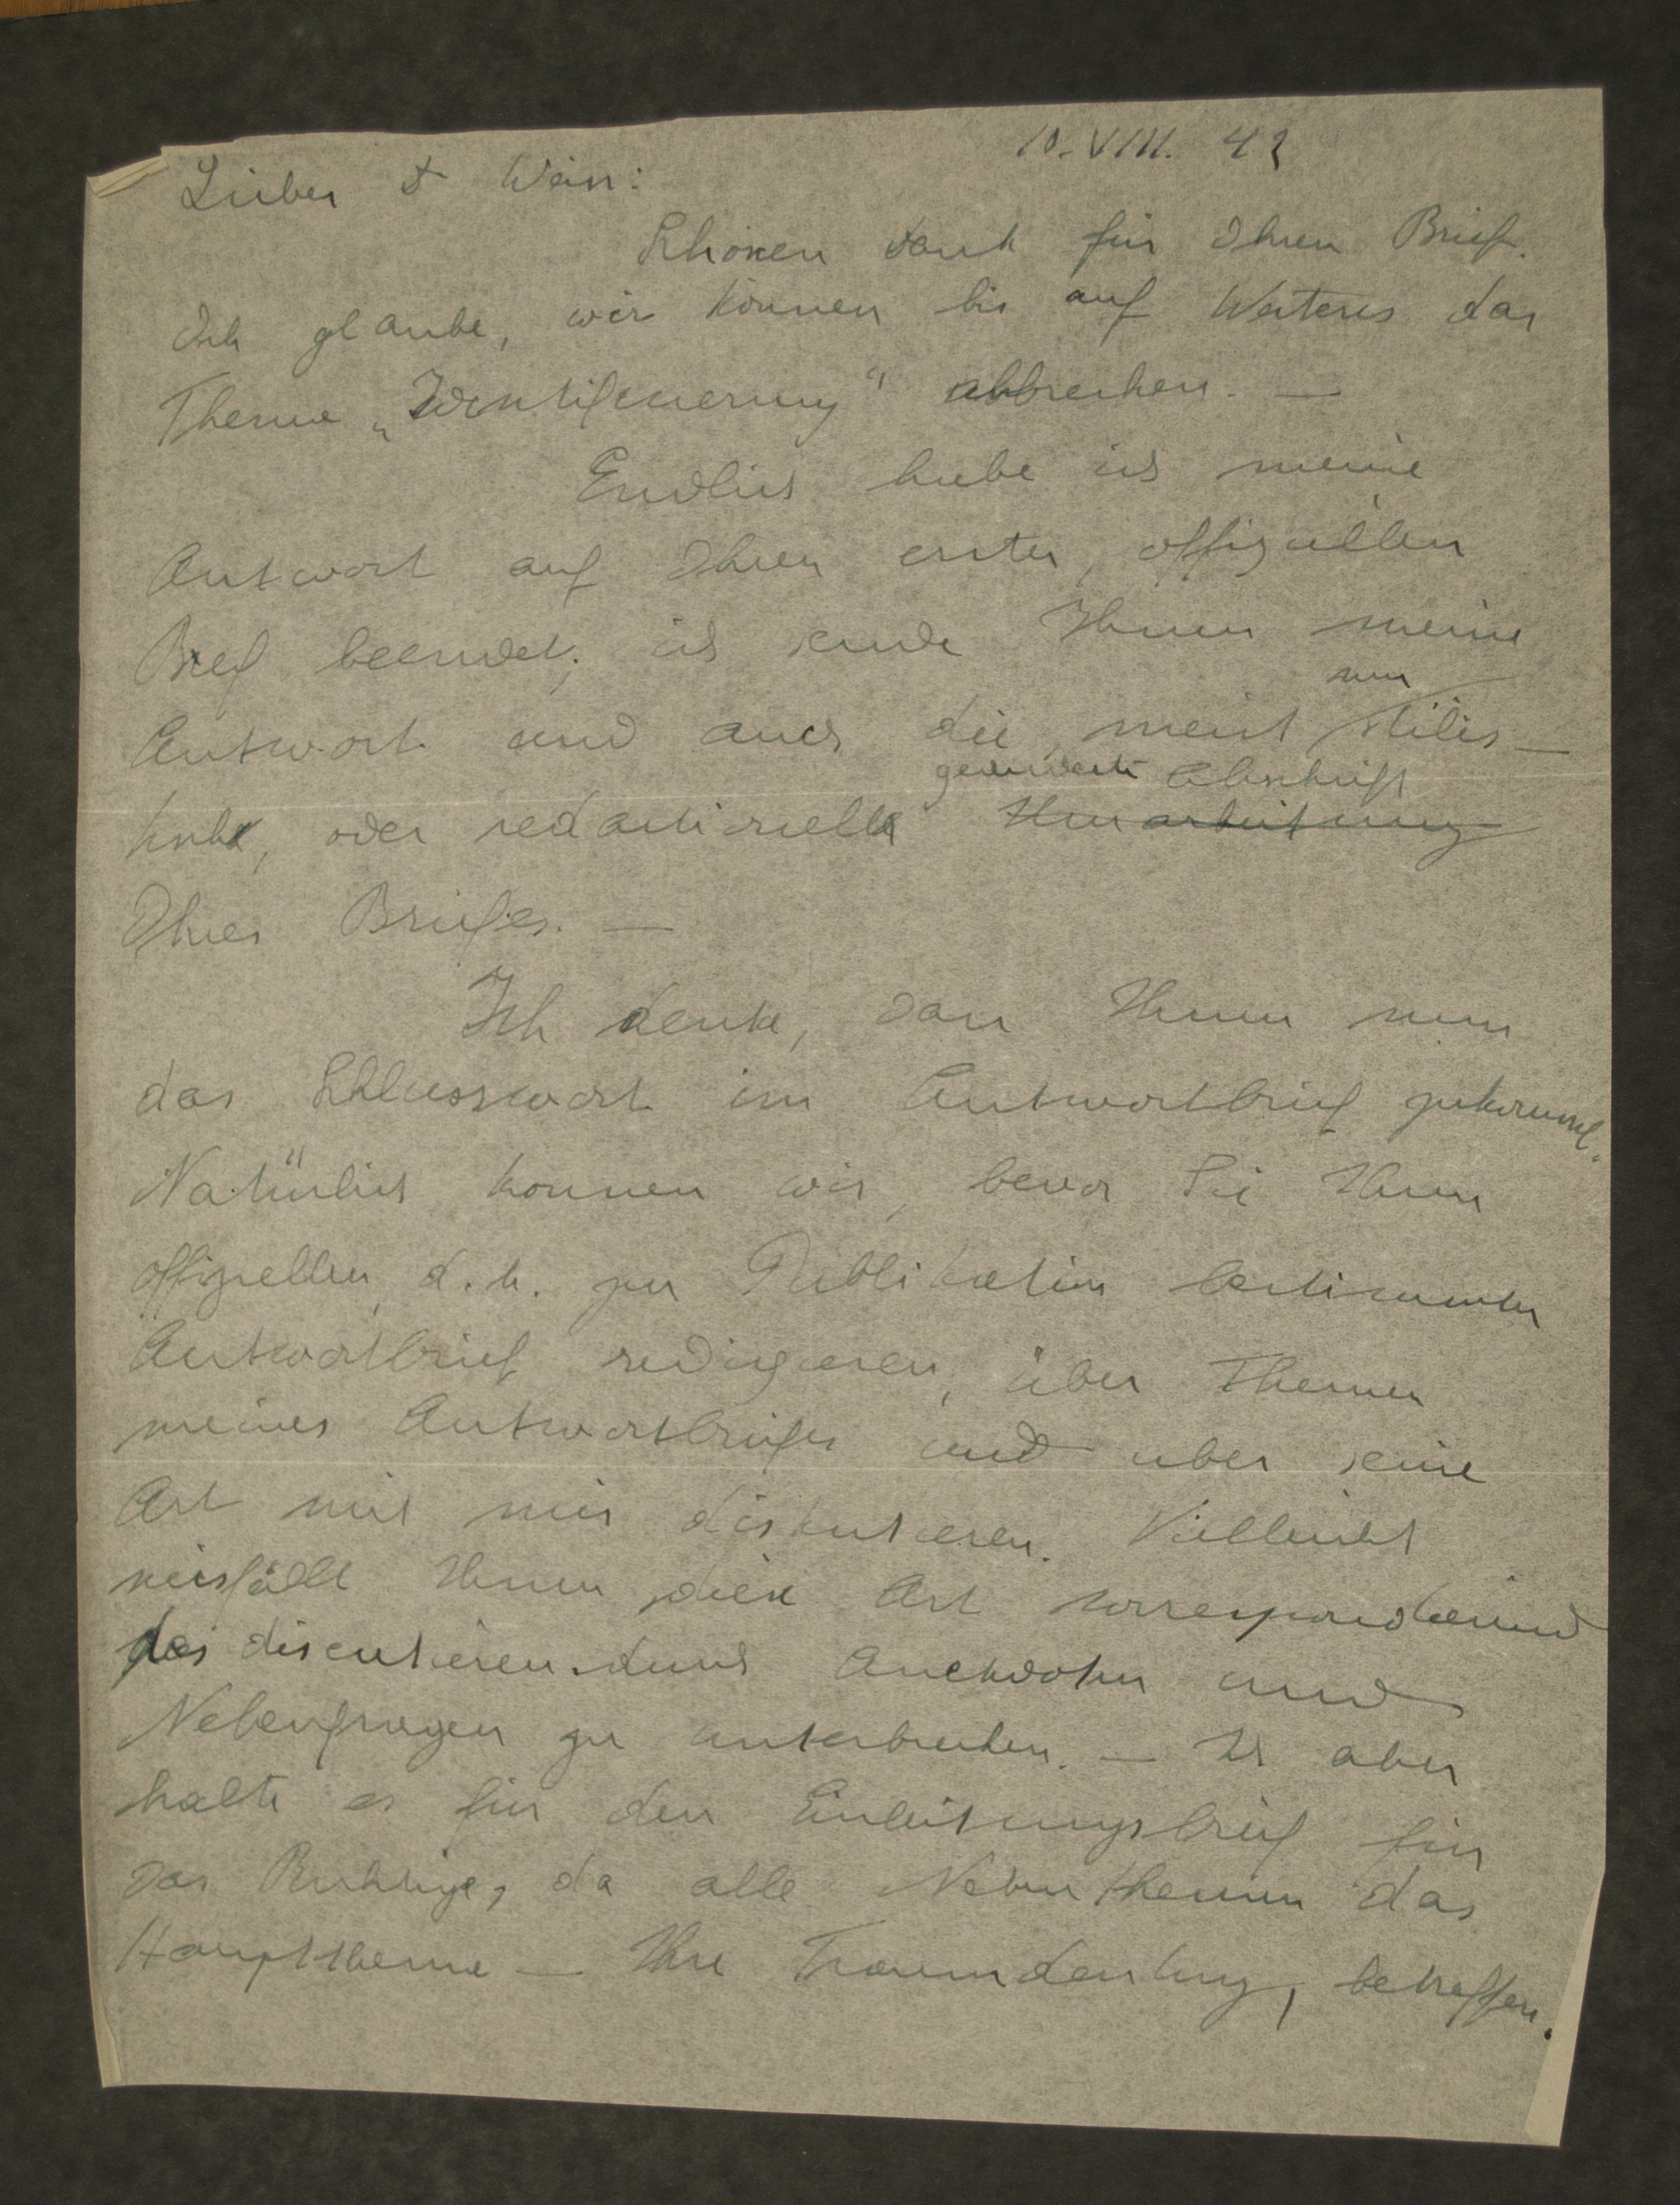 10. VIII. 42
Lieber Weiss:
Schönen dank für Ihren Brief.
Ich glaube, wir können bis auf Weiteres das
Thema „Identifizierung" abbrechen. —
Endlich habe ich meine
Antwort auf Ihren ersten, offiziellen
Brief beendet; ich sende Ihnen meine
nur
Antwort und auch die, meist stilis-
geänderte Abschrift
tische, oder redactionelle Umarbeitung
Ihres Briefes. —
Ich denke, dass Ihnen nun
das Schlusswort im Antwortbrief zukommt.
Natürlich konnen wir, bevor Sie Ihren
offiziellen, d.h. zur Publikation bestimmten
Antwortbrief redigieren, über Themen
meines Antwortbriefes und uber seine
Art mit mir diskutieren. Vielleicht
missfällt Ihnen diese Art korrespondierend
das discutieren durch Anekdoten und
Nebenfragen zu unterbrechen. — Ich aber
halte es für den Einleitungsbrief für
das Richtige, da alle Nebenthemen das
Hauptthema — Ihre Traumdeutung, betreffen.